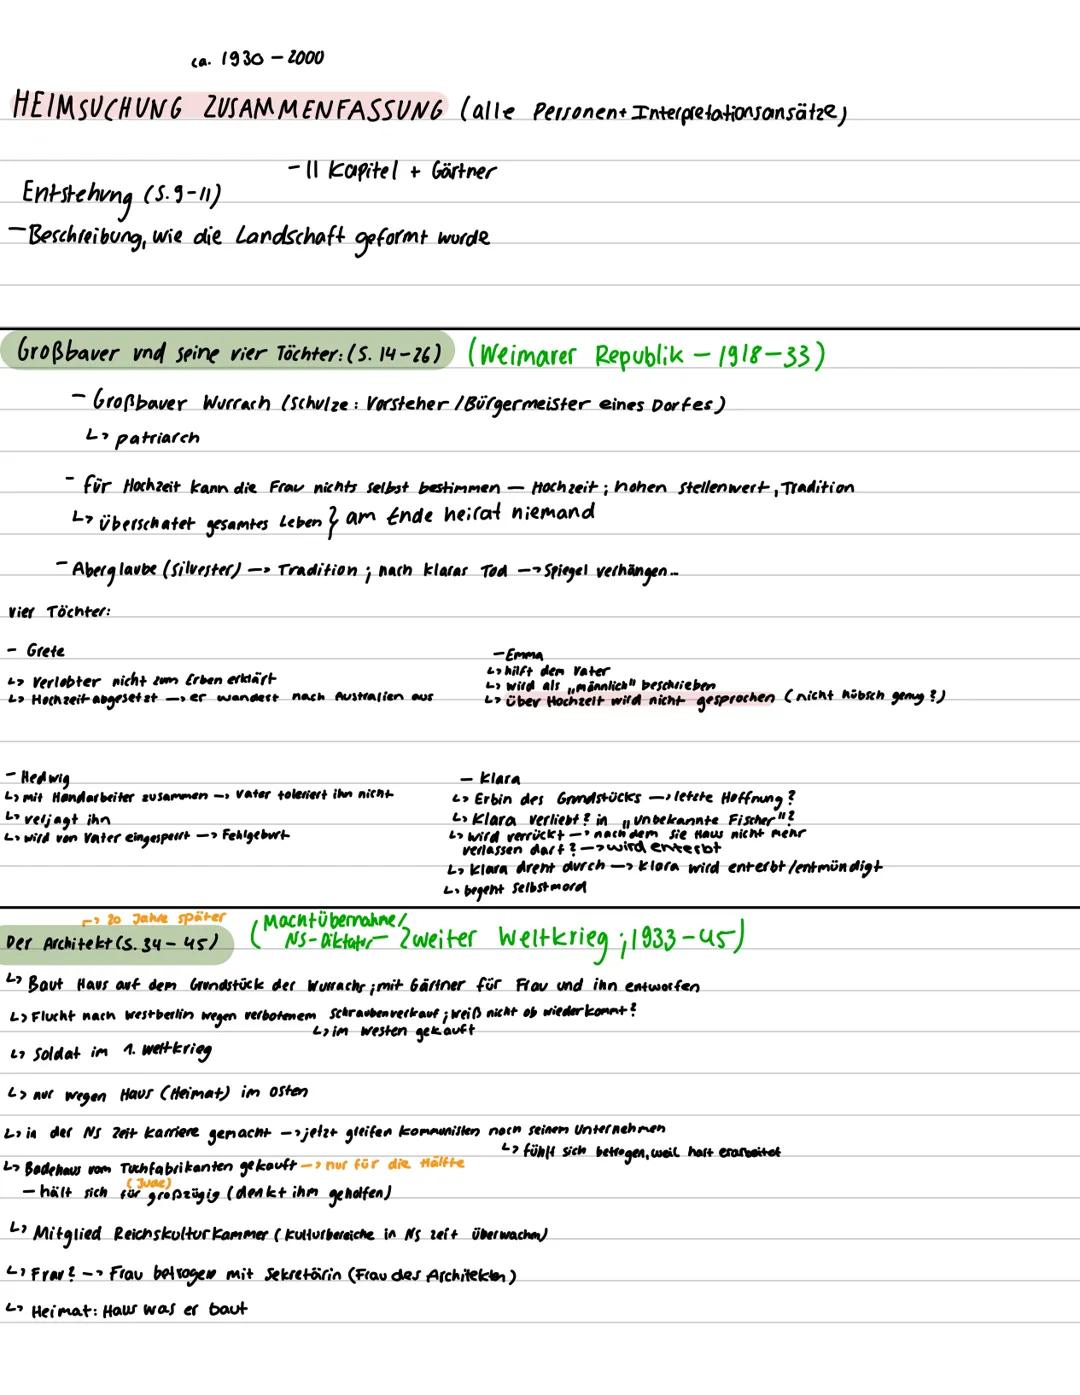 ca. 1930 - 2000
HEIMSUCHUNG ZUSAMMENFASSUNG (alle Personen + Interpretationsansätze)
- 11 Kapitel + Gärtner
Entstehung (S. 9-11)
- Beschreibung, wie die Landschaft geformt wurde
Großbauer und seine vier Töchter: (S. 14-26) (Weimarer Republik - 1918-33)
- Großbauer Wurrach (Schulze: Vorsteher / Bürgermeister eines Dorfes)
↳ patriarch
- für Hochzeit kann die Frau nichts selbst bestimmen — Hochzeit; hohen Stellenwert, Tradition
↳ überschatet gesamtes Leben } am Ende heirat niemand
- Aberglaube (Silvester) → Tradition; nach Klaras Tod → Spiegel verhängen...
vier Töchter:
- Grete
↳ Verlobter nicht zum Erben erklärt
↳ Hochzeit abgesetzt → er wandert nach Australien aus
- Emma
↳ hilft dem Vater
↳ wird als „männlich" beschrieben
↳ über Hochzeit wird nicht gesprochen (nicht hübsch genug?)
- Hedwig
↳ mit Handarbeiter zusammen → Vater toleriert ihn nicht
↳ verjagt ihn
↳ wird von Vater eingesperrt → Fehlgeburt
- Klara
↳ Erbin des Grundstücks → letzte Hoffnung?
↳ Klara verliebt? in „unbekannte Fischer"?
↳ wird verrückt → nachdem sie Haus nicht mehr
verlassen darf? → wird enterbt
↳ Klara dreht durch → Klara wird enterbt/entmündigt
↳ begeht Selbstmord
↳ 20 Jahre später
Der Architekt (S. 34-45) (Machtübernahme/
NS-Diktatur — Zweiter Weltkrieg; 1933-45)
↳ Baut Haus auf dem Grundstück der Wurrachs; mit Gärtner für Frau und ihn entworfen
↳ Flucht nach Westberlin wegen verbotenem Schraubenverkauf; weiß nicht ob wiederkommt?
↳ im Westen gekauft
↳ Soldat im 1. Weltkrieg
↳ nur wegen Haus (Heimat) im Osten
↳ in der NS Zeit Karriere gemacht → jetzt greifen Kommunisten nach seinem Unternehmen
↳ fühlt sich betrogen, weil hart erarbeitet
↳ Badehaus vom Tuchfabrikanten gekauft → nur für die Hälfte
(Jude)
- hält sich für großzügig (denkt ihm geholfen)
↳ Mitglied Reichskulturkammer (Kulturbereiche in NS Zeit überwachen)
↳ Frau? → Frau betrogen mit Sekretärin (Frau des Architekten)
↳ Heimat: Haus was er baut